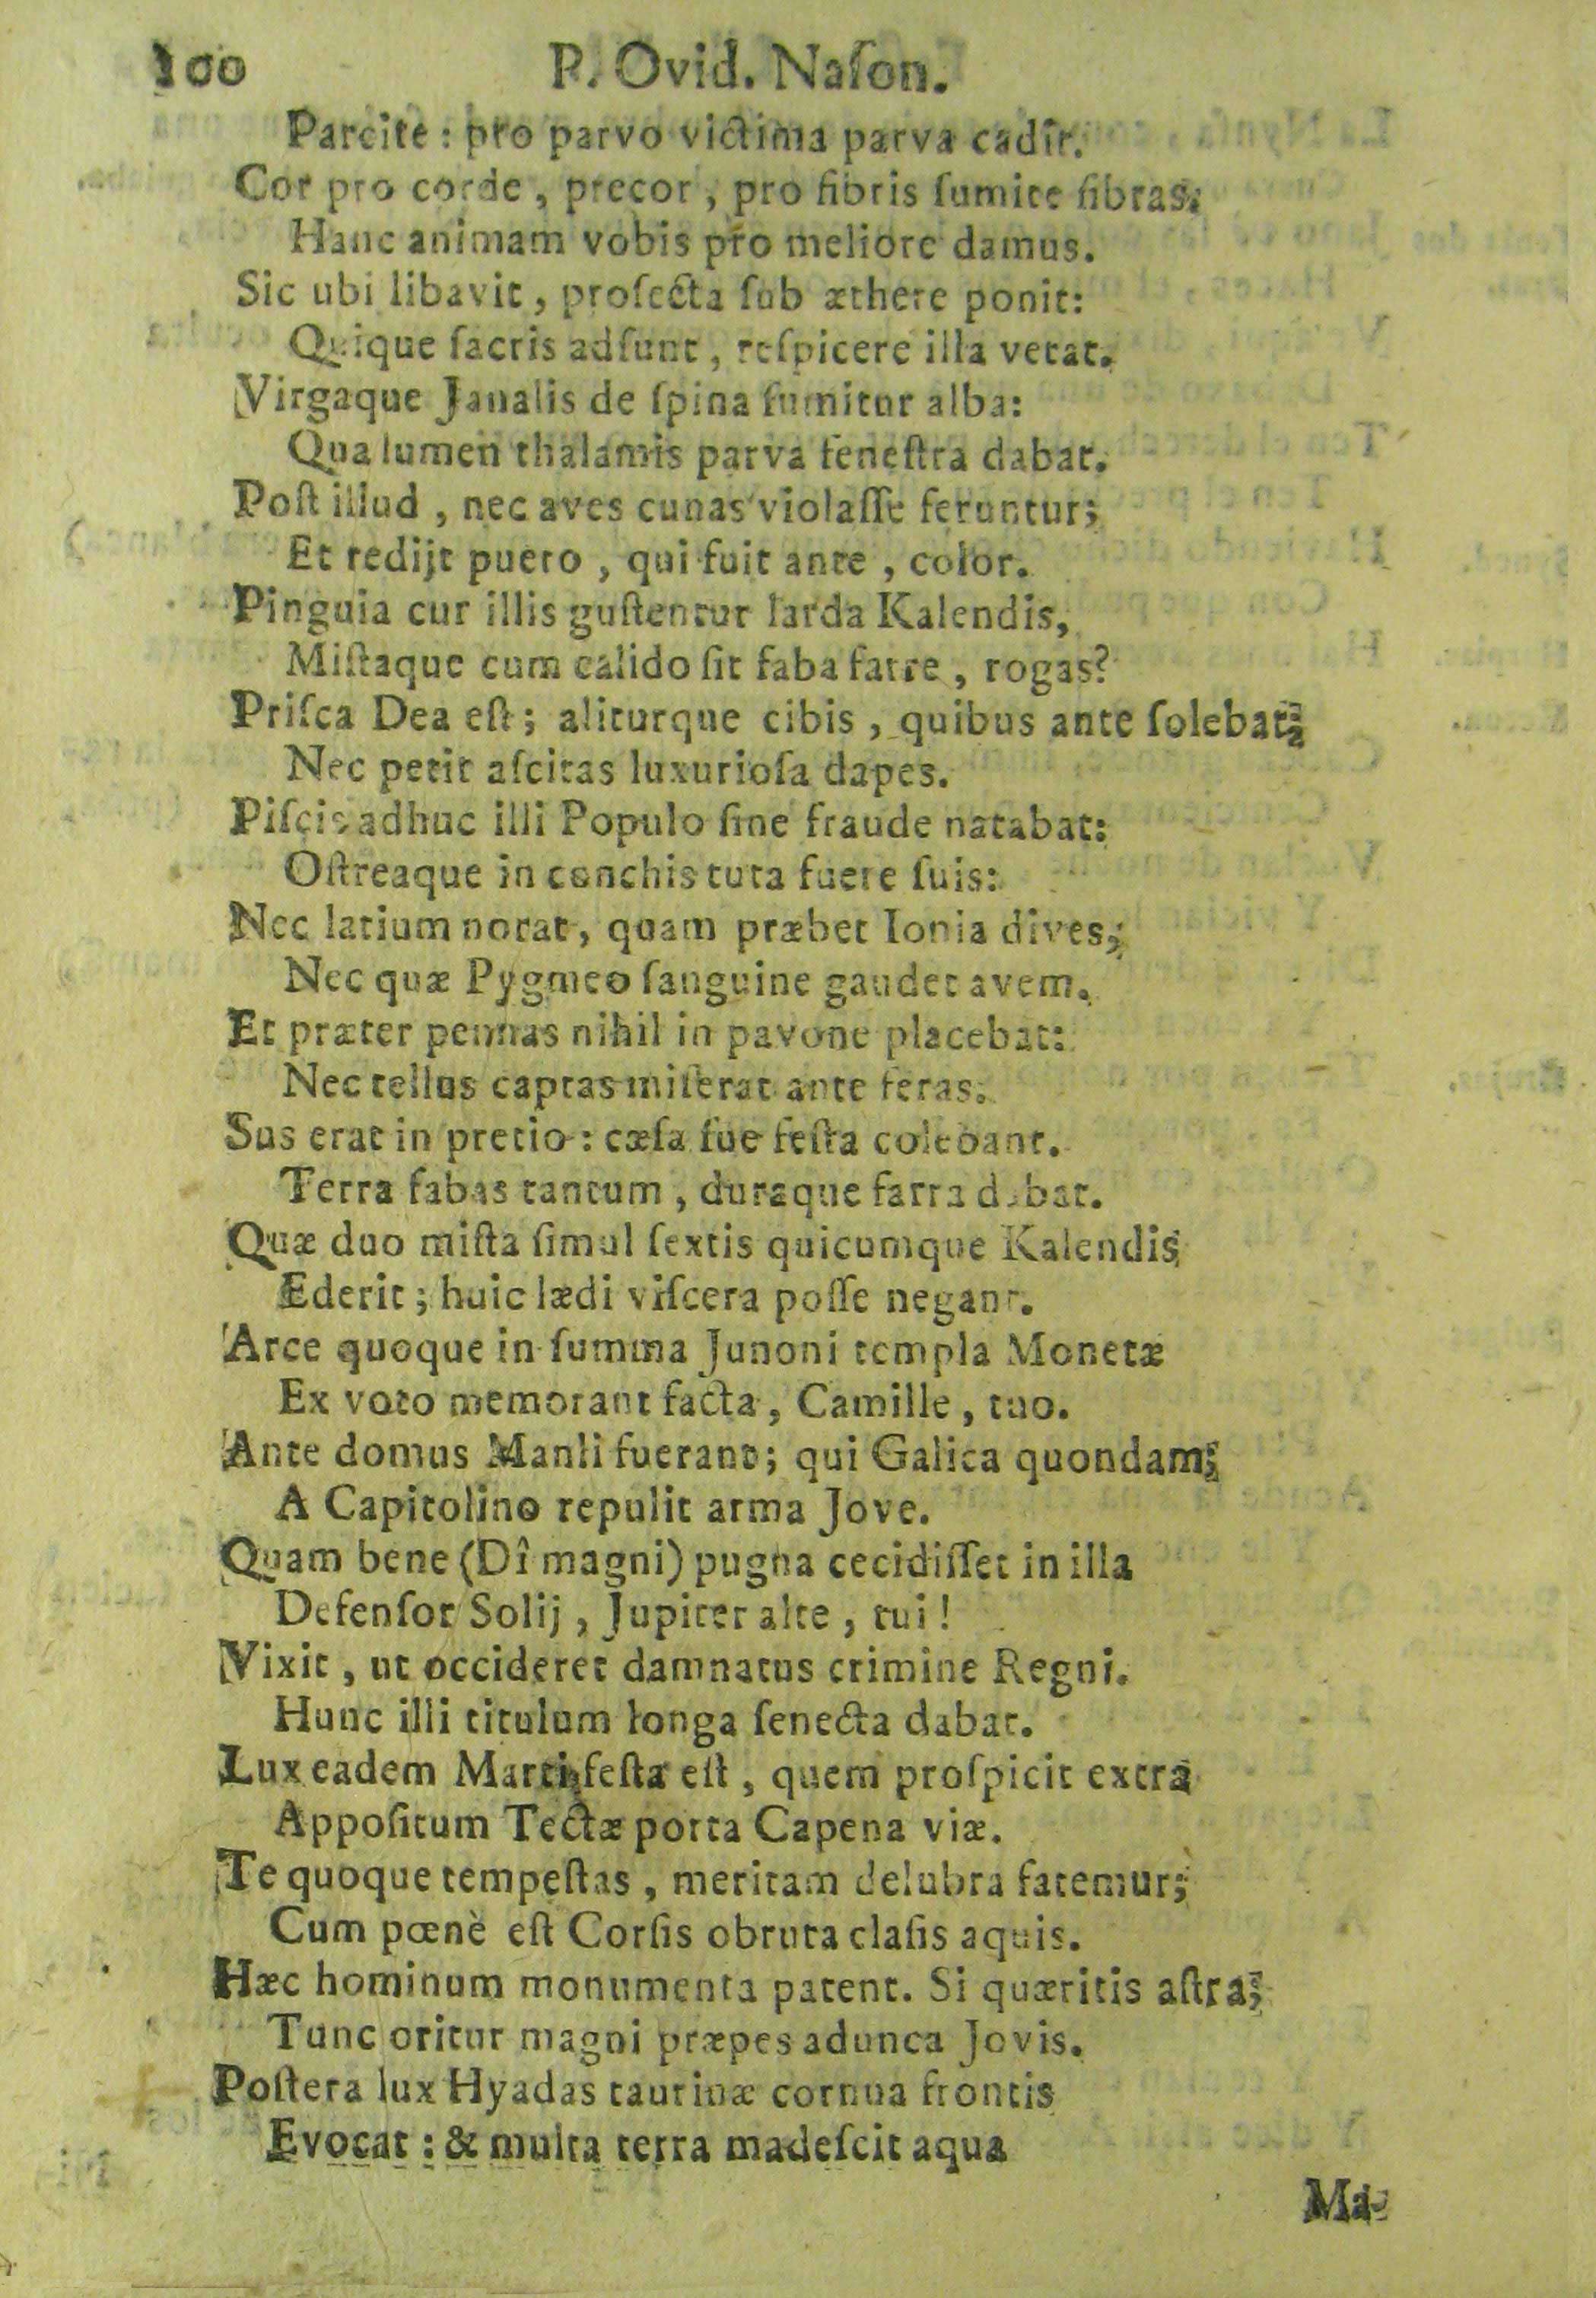 100 P. Ovid. Naſon.
Parcite : pro parvo victima parva cadit.
Cor pro corde , precor , pro fibris ſumite fibras:
Hanc animam vobis pro meliore damus.
Sic ubi libavit , proſecta ſub æthere ponit:
Quique ſacris adſunt , reſpicere illa vetat.
Virgaque Janalis de ſpina ſumitur alba:
Qua lumen thalamis parva feneſtra dabat.
Poſt illud , nec aves cunas violaſſe feruntur;
Et redijt puero , qui fuit ante , color.
Pinguia cur illis guſtentur larda Kalendis,
Miſtaque cum calido ſit faba farre , rogas?
Priſca Dea eſt ; aliturque cibis , quibus ante ſolebat;
Nec petit aſcitas luxurioſa dapes.
Piſcis adhuc illi Populo ſine fraude natabat:
Oſtreaque in conchis tuta fuere ſuis:
Nec latium norat , quam præbet Ionia dives;
Nec quæ Pygmeo ſanguine gaudet avem.
Et præter pennas nihil in pavone placebat:
Nec tellus captas miſerat ante feras.
Sus erat in pretio : cæſa ſue feſta colebant.
Terra fabas tantum , duraque farra dabat.
Quæ duo miſta ſimul ſextis quicumque Kalendis
Ederit ; huic lædi viſcera poſſe negant.
Arce quoque in ſumma Junoni templa Monetæ
Ex voto memorant facta , Camille , tuo.
Ante domus Manli fuerant ; qui Galica quondam;
A Capitolino repulit arma Jove.
Quam bene (Dî magni) pugna cecidiſſet in illa
Defenſor Solij , Jupiter alte , tui !
Vixit , ut occideret damnatus crimine Regni.
Hunc illi titulum longa ſenecta dabat.
Lux eadem Marti feſta eſt , quem proſpicit extra
Appoſitum Tectæ porta Capena viæ.
Te quoque tempeſtas , meritam delubra fatemur;
Cum pœnè eſt Corſis obruta claſis aquis.
Hæc hominum monumenta patent. Si quæritis aſtra;
Tunc oritur magni præpes adunca Jovis.
Poſtera lux Hyadas taurinæ cornua frontis
Evocat : & multa terra madeſcit aqua
Ma-